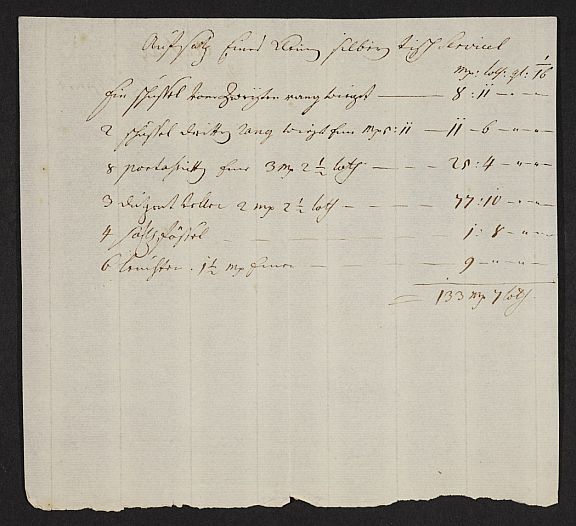 Auffsatz Eines kleinen silbern tisch Servicel
mp: loth: qt: 1/16
Ein schüssel vom Zweÿten rang wiegt — 8 : 11 - " - "
2 schüssel dritten rang wiegt eine mp 5 : 11 — 11 - 6 - " - " - "
8 portassietten eine 3 mp 2 1/2 loth — 25 : 4 - " - " - "
3 dutzent teller 2 mp 2 1/2 loth — 77 : 10 - " - "
4 saltzfässel — 1 : 8 - " - "
6 leuchter . 1 1/2 mp einer — 9 - " - " - "
= 133 mp 7 loth.